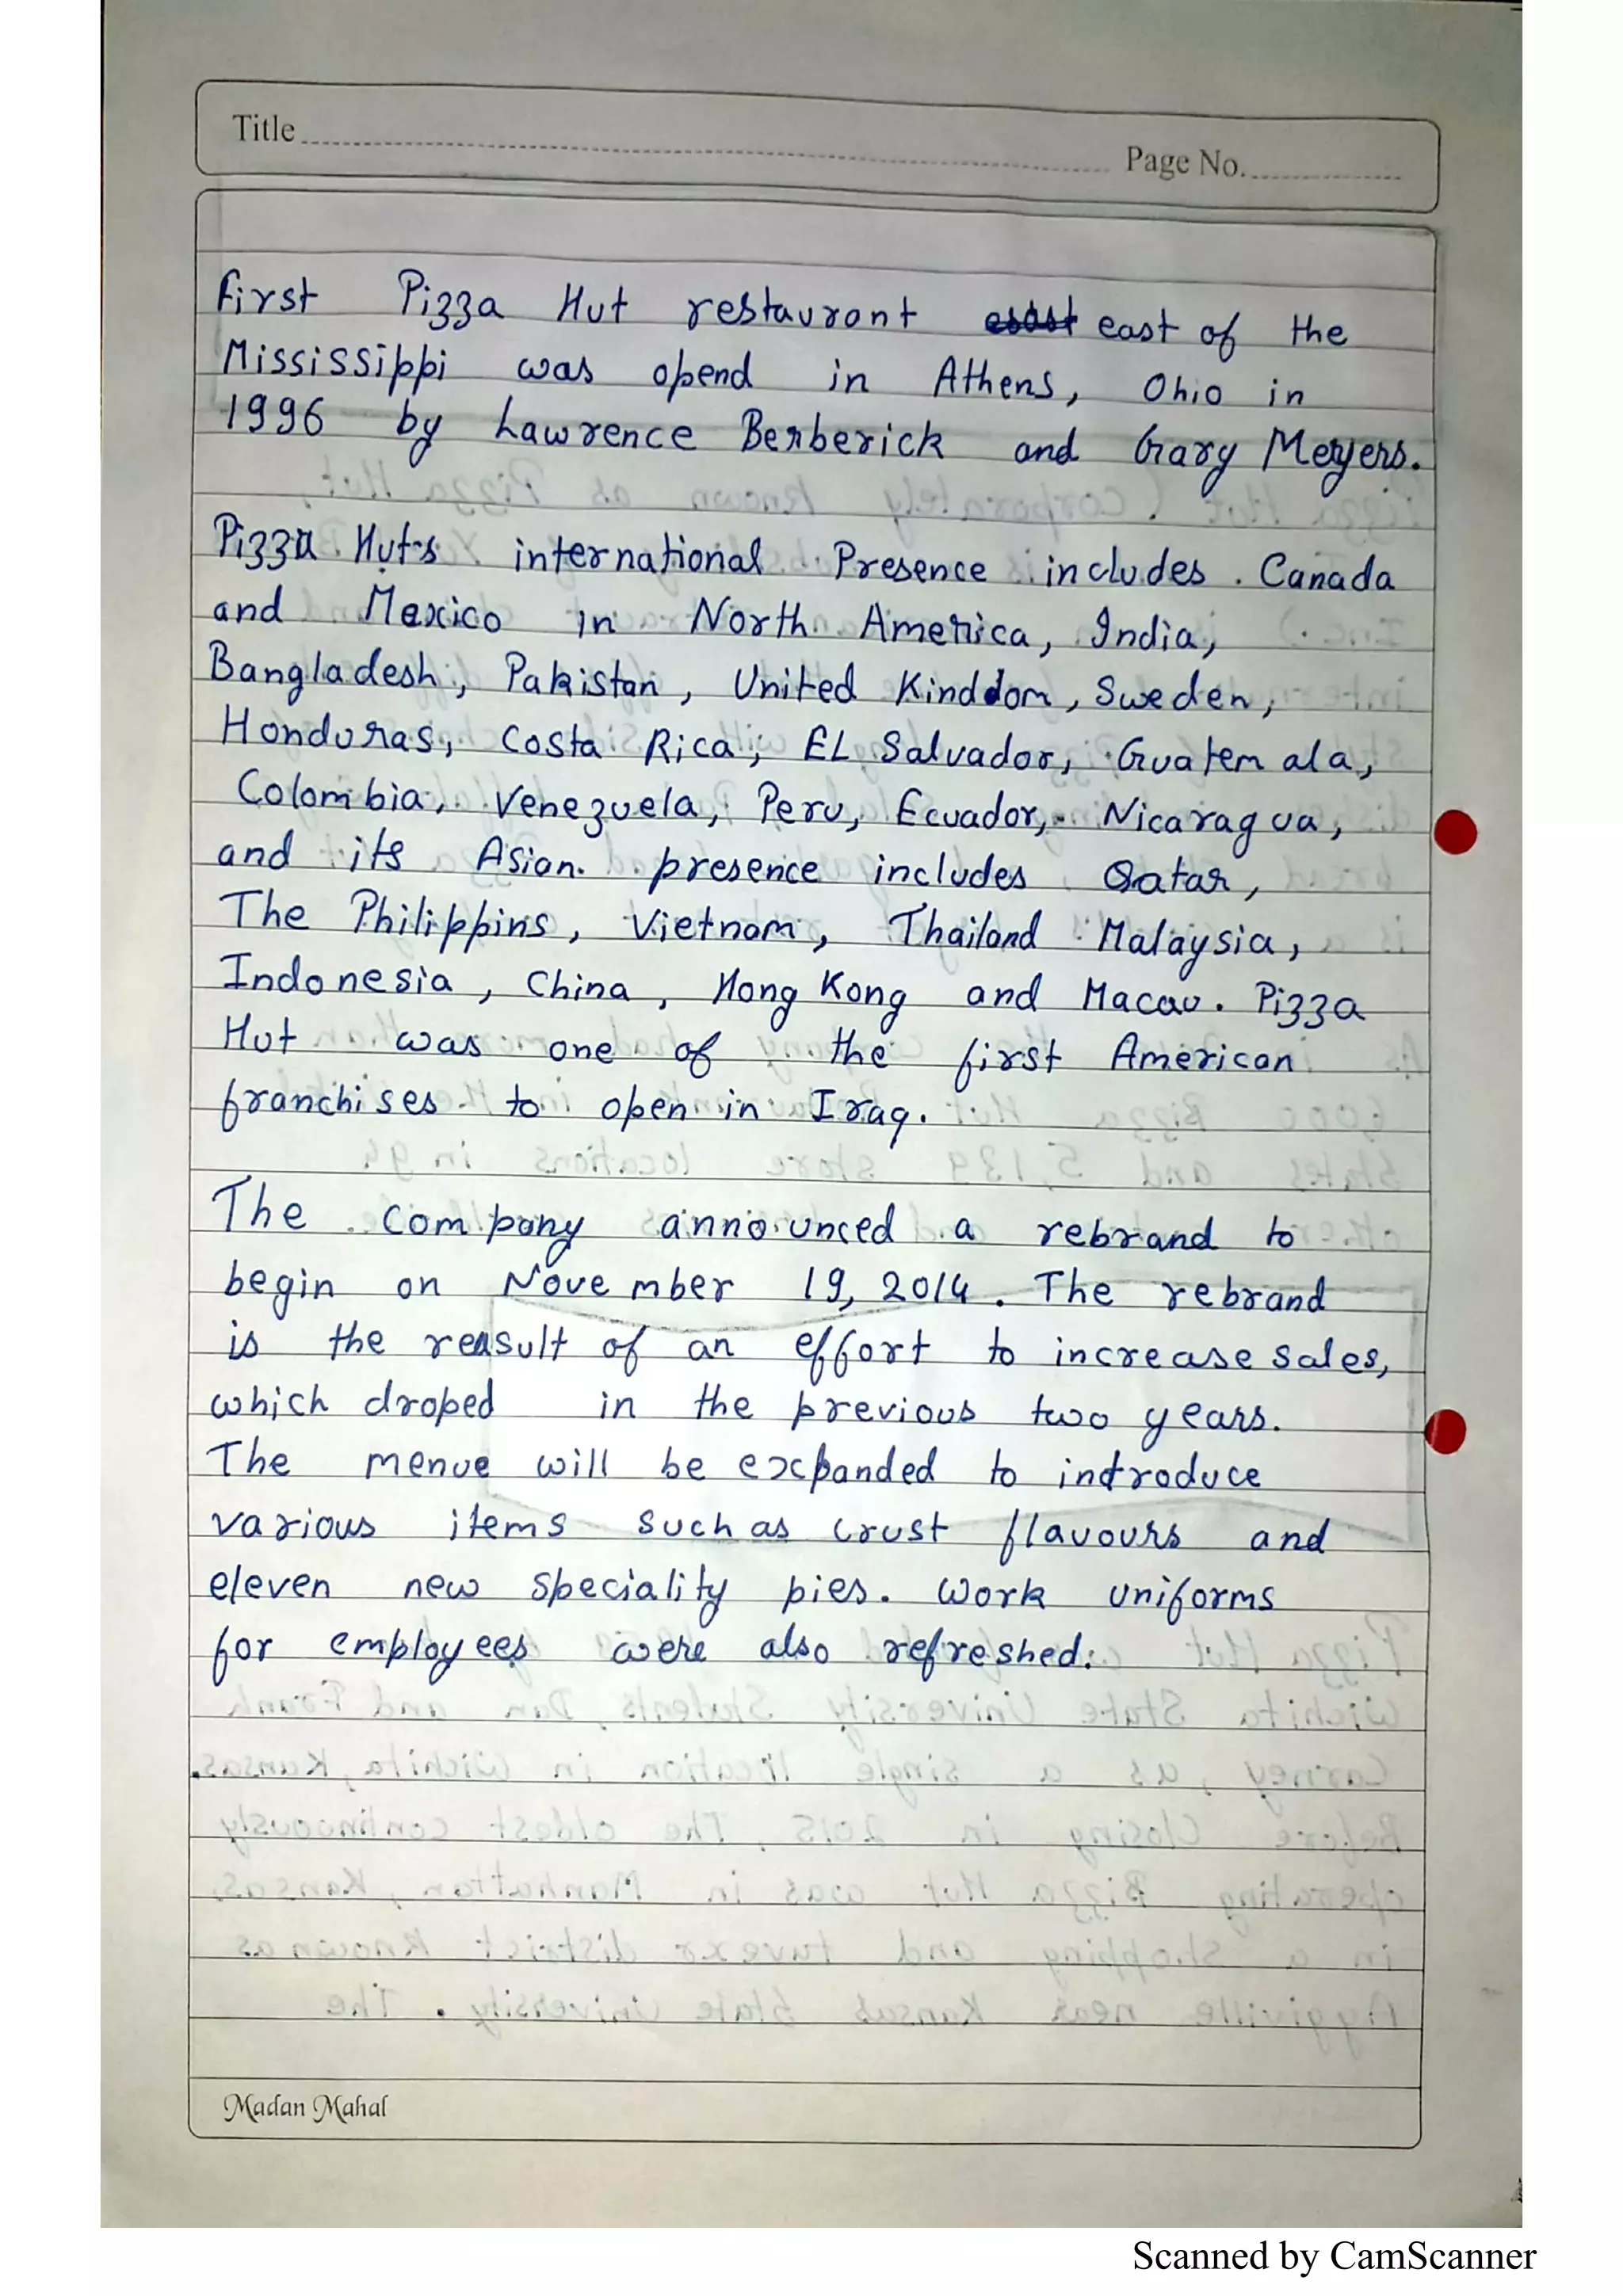 Title
Page No.
first Pizza Hut restauront east of the
Mississippi was opend in Athens, Ohio in
1996 by Lawrence Berberick and Gary Meyers.
Pizza Hut's international Presence includes . Canada
and Mexico in North America, India,
Bangladesh, Pakistan, United Kinddom, Sweden,
Honduras, Costa Rica, EL Salvador, Guatemala,
Colombia, Venezuela, Peru, Ecuador, Nicaragua,
and its Asian presence includes Qatar,
The Philippins, Vietnam, Thailand Malaysia,
Indonesia, China, Hong Kong and Macau. Pizza
Hut was one of the first American
franchises to open in Iraq.
The Company announced a rebrand to
begin on November 19, 2014. The rebrand
is the reasult of an effort to increase sales,
which droped in the previous two years.
The menue will be expanded to introduce
various items such as crust flavours and
eleven new speciality pies. Work uniforms
for employees were also refreshed.
Madan Mahal
Scanned by CamScanner